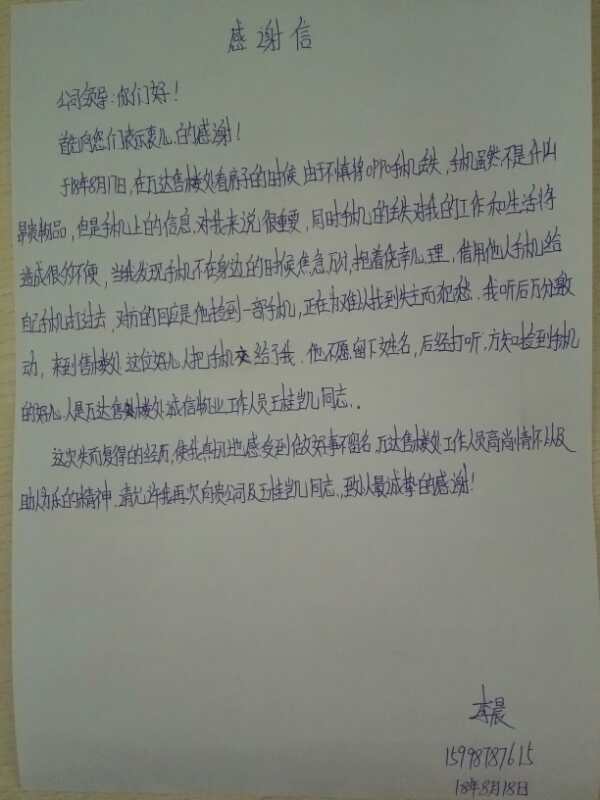 感谢信
公司领导：你们好！
首先向您们表示衷心的感谢！
于18年8月17日，在万达售楼处看房子的时候，由于不慎将OPPO手机丢失，手机虽然不是什么
昂贵物品，但是手机上的信息，对我来说很重要，同时手机的丢失对我的工作和生活将
造成很多不便，当我发现手机不在身边的时候焦急万分，抱着侥幸心理，借用他人手机给
自己手机打过去，对方的回应是他捡到一部手机，正在为难以找到失主而犯愁。我听后万分激
动，来到售楼处这位好心人把手机交给了我．他不愿留下姓名，后经打听．方知捡到手机
的好心人是万达售楼处诚信物业工作人员王桂凯同志．
这次失而复得的经历，使我真切地感受到做好事不留名，万达售楼处工作人员高尚情怀以及
助人为乐的精神．请允许我再次向贵公司及王桂凯同志，致以最诚挚的感谢！
李晨
15998787615
18年8月18日